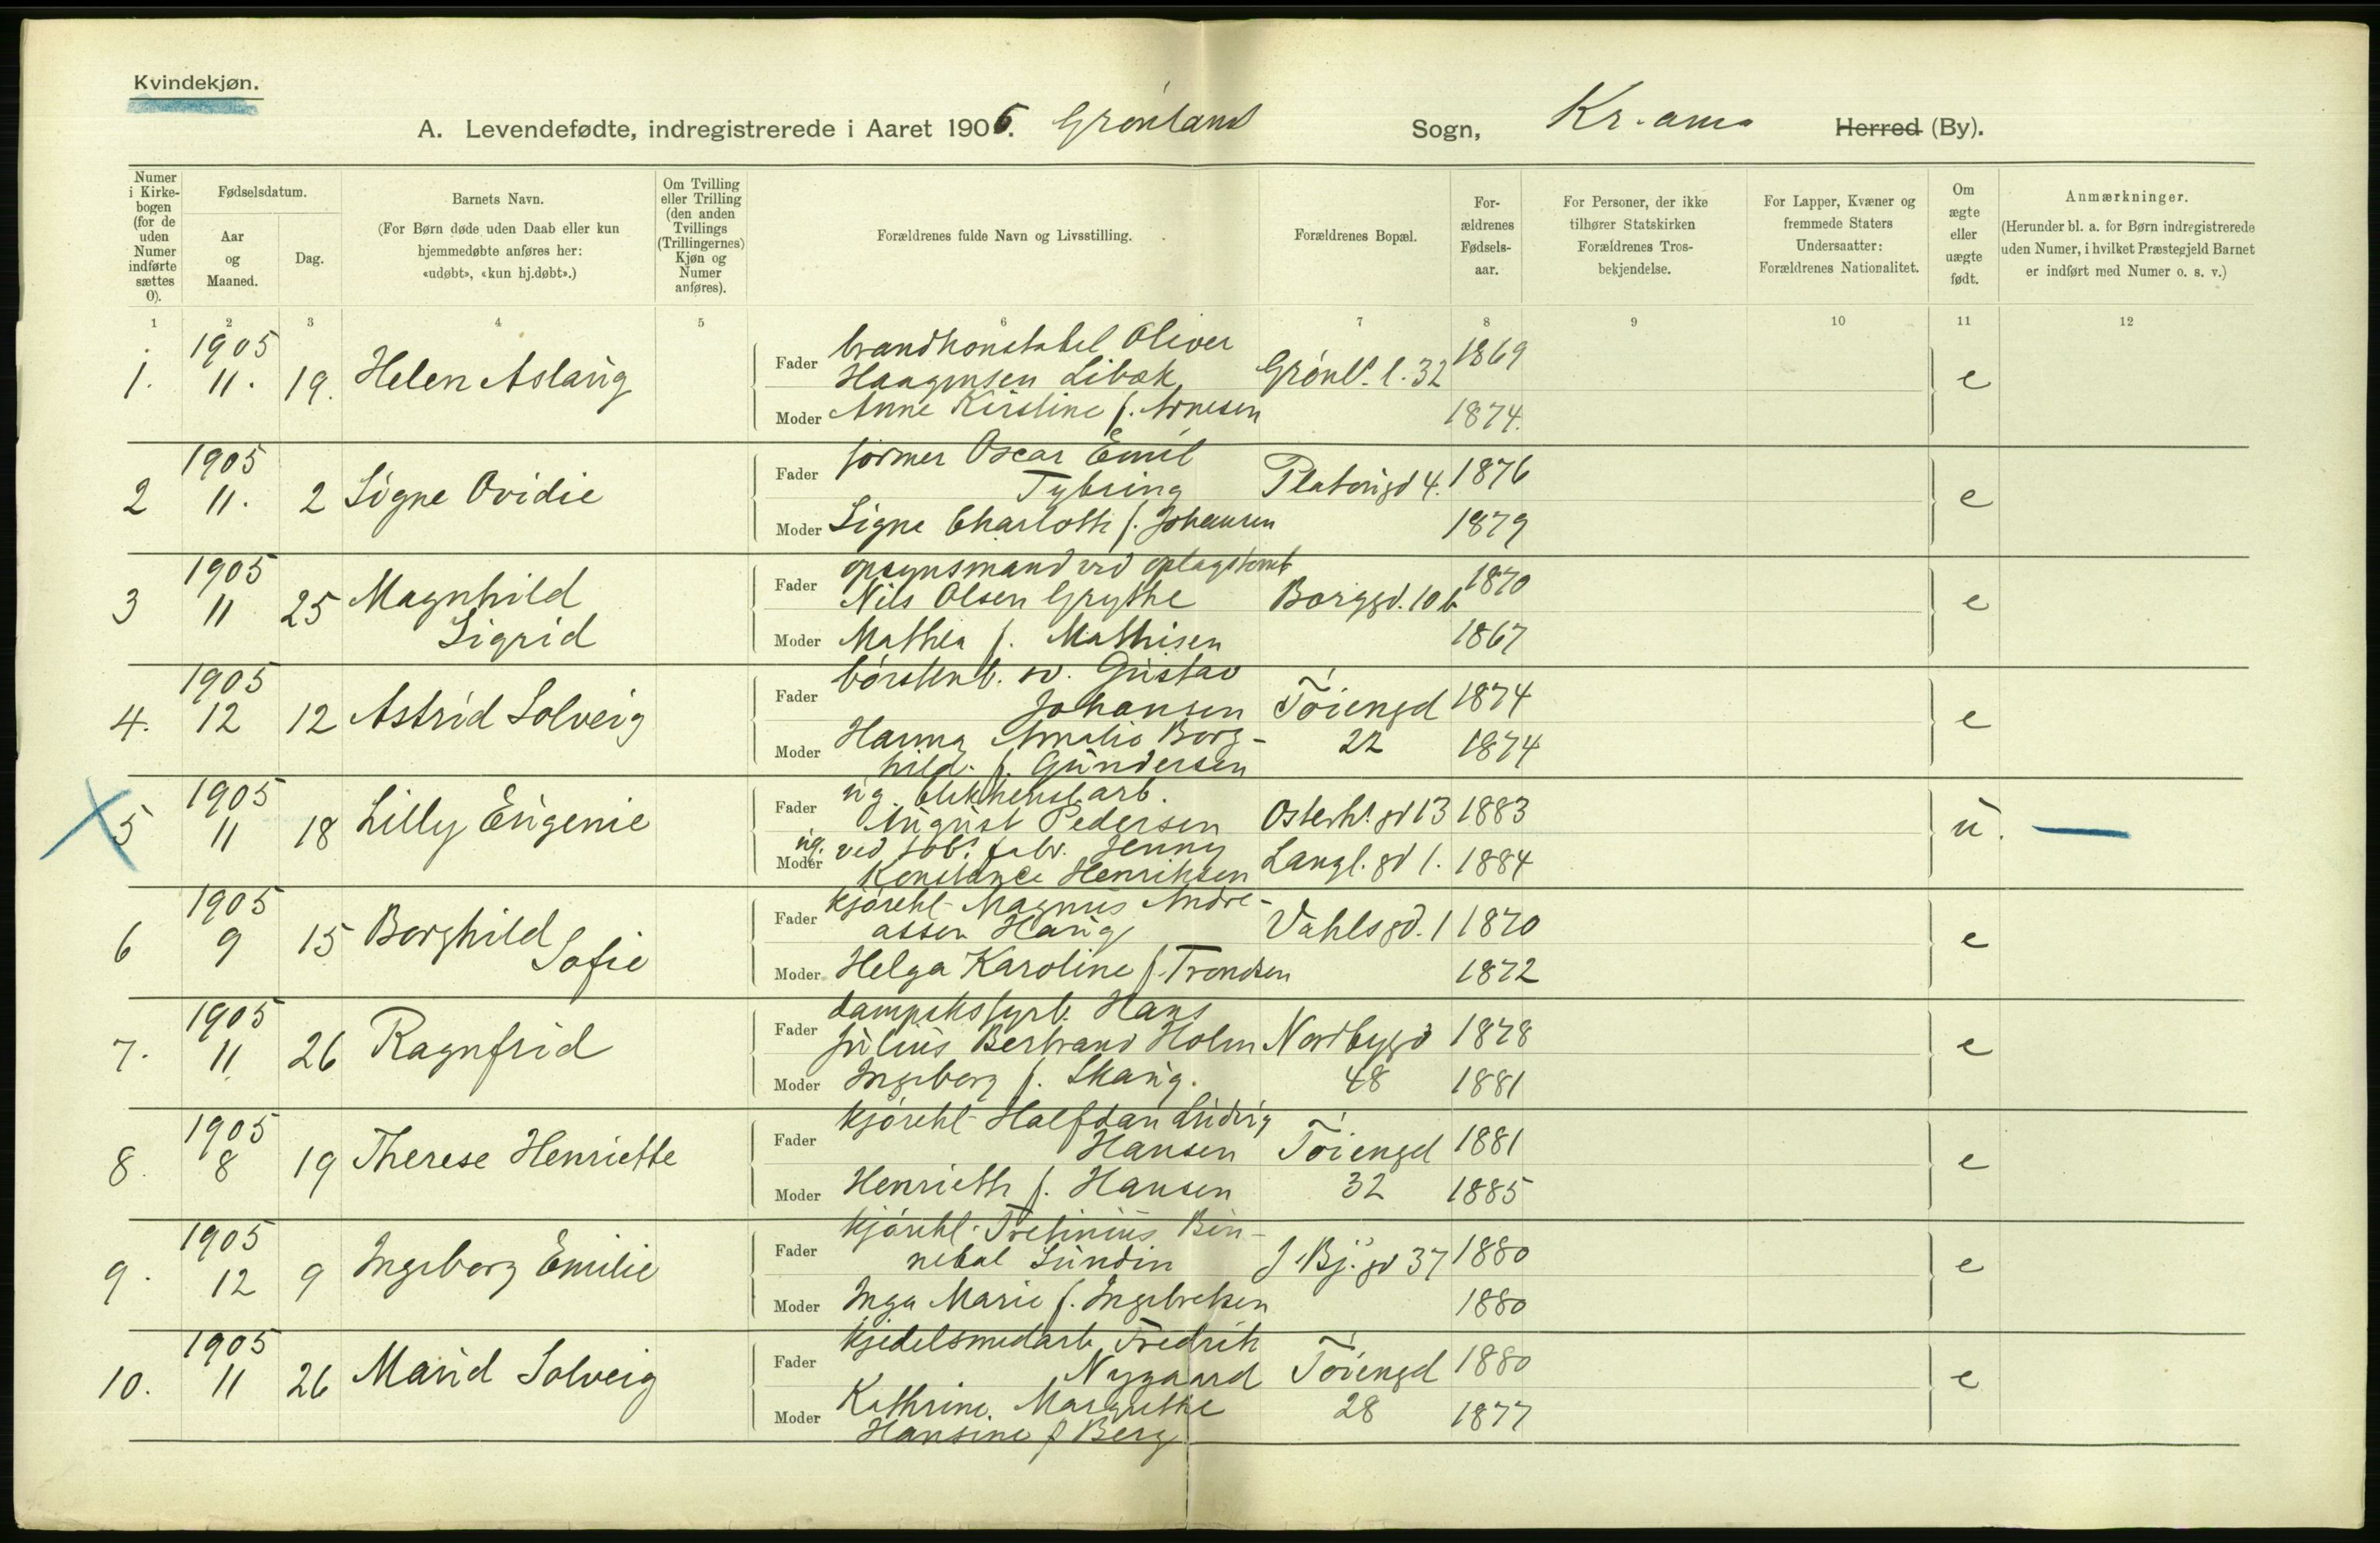 Kvindekjøn.
A. Levendefødte, indregistrerede i Aaret 1906. Grønland Sogn, Kr.ania Herred (By).
Numer i Kirkebogen (for de uden Numer indførte sættes 0).
Fødselsdatum.
Aar og Maaned.
Dag.
Barnets Navn.
(For Børn døde uden Daab eller kun hjemmedøbte anføres her: «udøbt», «kun hj.døbt».)
Om Tvilling eller Trilling (den anden Tvillings (Trillingernes) Kjøn og Numer anføres).
Forældrenes fulde Navn og Livsstilling.
Forældrenes Bopæl.
Forældrenes Fødselsaar.
For Personer, der ikke tilhører Statskirken Forældrenes Trosbekjendelse.
For Lapper, Kvæner og fremmede Staters Undersaatter: Forældrenes Nationalitet.
Om ægte eller uægte født.
Anmærkninger.
(Herunder bl. a. for Børn indregistrerede uden Numer, i hvilket Præstegjeld Barnet er indført med Numer o. s. v.)
1 2 3 4 5 6 7 8 9 10 11 12
1. 1905 11. 19. Helen Aslaug
Fader brandkonstabel Oliver
Haagensen Libæk Grønl. l. 32 1869 e
Moder Anne Kirstine f. Arnesen 1874.
2 1905 11. 2 Signe Ovidie
Fader former Oscar Emil
Tybring Platousgd 4. 1876 e
Moder Signe Charlotte f. Johansen 1879
3 1905 11 25 Magnhild Sigrid
Fader opsynsmand ved oplagstomt
Nils Olsen Grythe Borggd. 10 b 1870 e
Moder Mathea f. Mathisen 1867
4. 1905 12 12 Astrid Solveig
Fader børstenb. sv. Gustav
Johansen Tøiengd 1874 e
Moder Hanna Amalie Borg-
hild f. Gundersen 22 1874
5 1905 11 18 Lilly Eugenie
Fader ug. blikkensl.arb.
August Pedersen Osterh. gd 13 1883 u. —
Moder ug. ved tob. fabr. Jenny
Konstance Henriksen Langl. gd 1. 1884
6 1905 9 15 Borghild Sofie
Fader kjørekl Magnus Andre-
assen Haug Vahlsgd. 1 1870 e
Moder Helga Karoline f. Trondsen 1872
7. 1905 11 26 Ragnfrid
Fader dampsksfyrb. Hans
Julius Bertrand Holm Nordbygd 1878 e
Moder Ingeborg f. Skaug. 48 1881
8. 1905 8 19 Therese Henriette
Fader kjørekl Halfdan Ludvig
Hansen Tøiengd 1881 e
Moder Henriette f. Hansen 32 1885
9. 1905 12 9 Ingeborg Emilie
Fader kjørekl.
Sundin J. Bj. gd 37 1880 e
Moder Inga Marie f. Ingebretsen 1880
10. 1905 11 26 Marid Solveig
Fader kjedelsmedarb Fredrik
Nygaard Tøiengd 1880 e
Moder Kathrine Margrethe
Hansine f Berg 28 1877